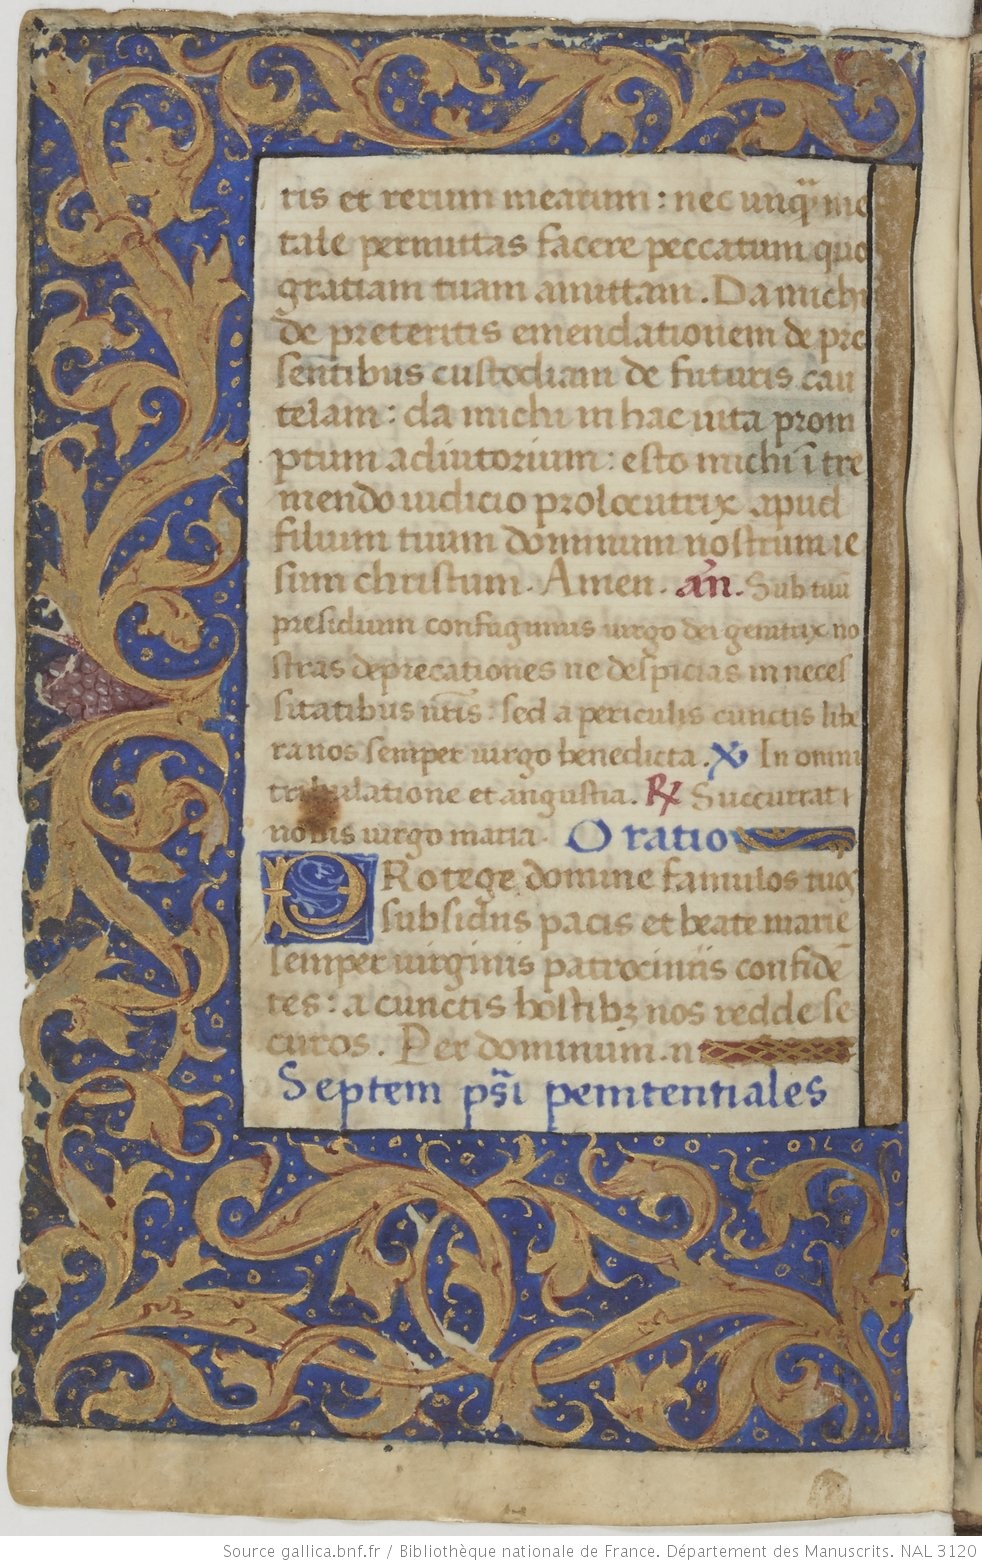 ris et rerum mearum : nec unq̃ mor
tale permittas facere peccatum quo
gratiam tuam amittam . Da michi
de preteritis emendationem de pre
sentibus custodiam de futuris cau
telam : da michi in hac uita prom
ptum adiutorium : esto michi ĩ tre
mendo iudicio prolocutrix apud
filium tuum dominum nostrum ie
sum christum . Amen . añ . Sub tuũ
presidium confugimus uirgo dei genitrix no
stras deprecationes ne despicias in neces
sitatibus nr̃is : sed a periculis cunctis libe
ra nos semper uirgo benedicta . ℣ In omni
tribulatione et angustia . ℟ Succurrat
nobis uirgo maria . Oratio
PRotege domine famulos tuos
subsidiis pacis et beate marie
semper uirginis patrociniis confidẽ
tes : a cunctis hostibꝫ nos redde se
curos . Per dominum . n
Septem ps̃i penitentiales
Source gallica.bnf.fr / Bibliothèque nationale de France. Département des Manuscrits. NAL 3120